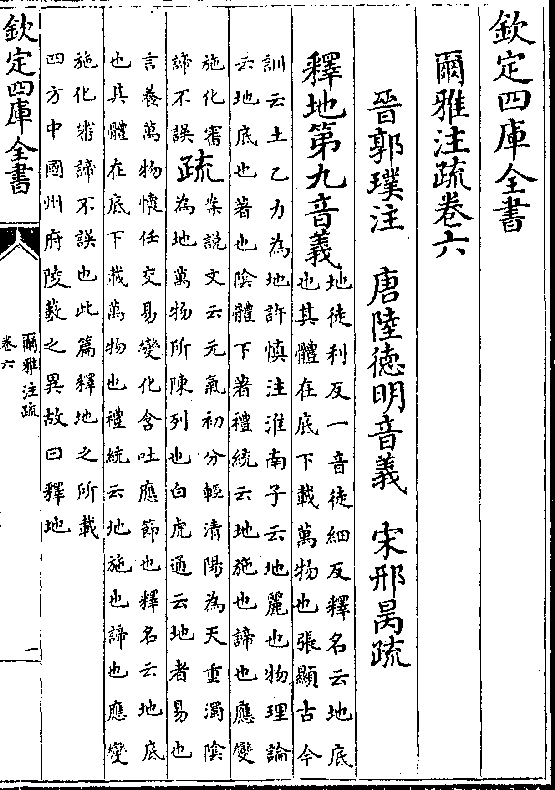 欽定四庫全書
爾雅注疏卷六
晉郭璞注　唐陸德明音義　宋邢昺疏
釋地第九音義
地徒利反一音徒細反釋名云地底
也其體在底下載萬物也張顯古今
訓云土乙力為地許慎注淮南子云地麗也物理論
云地底也著也陰體下著禮統云地施也諦也應變
施化審
諦不誤
疏
案說文云元氣初分輕清陽為天重濁陰
為地萬物所陳列也白虎通云地者易也
言養萬物懷任交易變化含吐應節也釋名云地底
也其體在底下載萬物也禮統云地施也諦也應變
施化審諦不誤也此篇釋地之所載
四方中國州府陵藪之異故曰釋地
欽定四庫全書
爾雅注疏
卷六
一